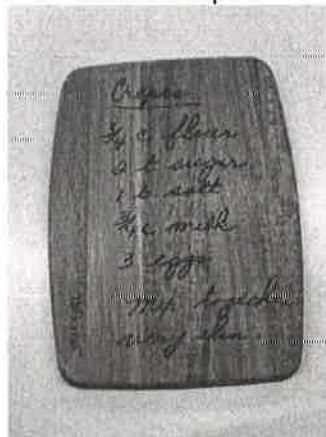 Crepes
3/4 c flour
2 t sugar
1 t salt
3/4 c milk
3 eggs
Mix together
very thin